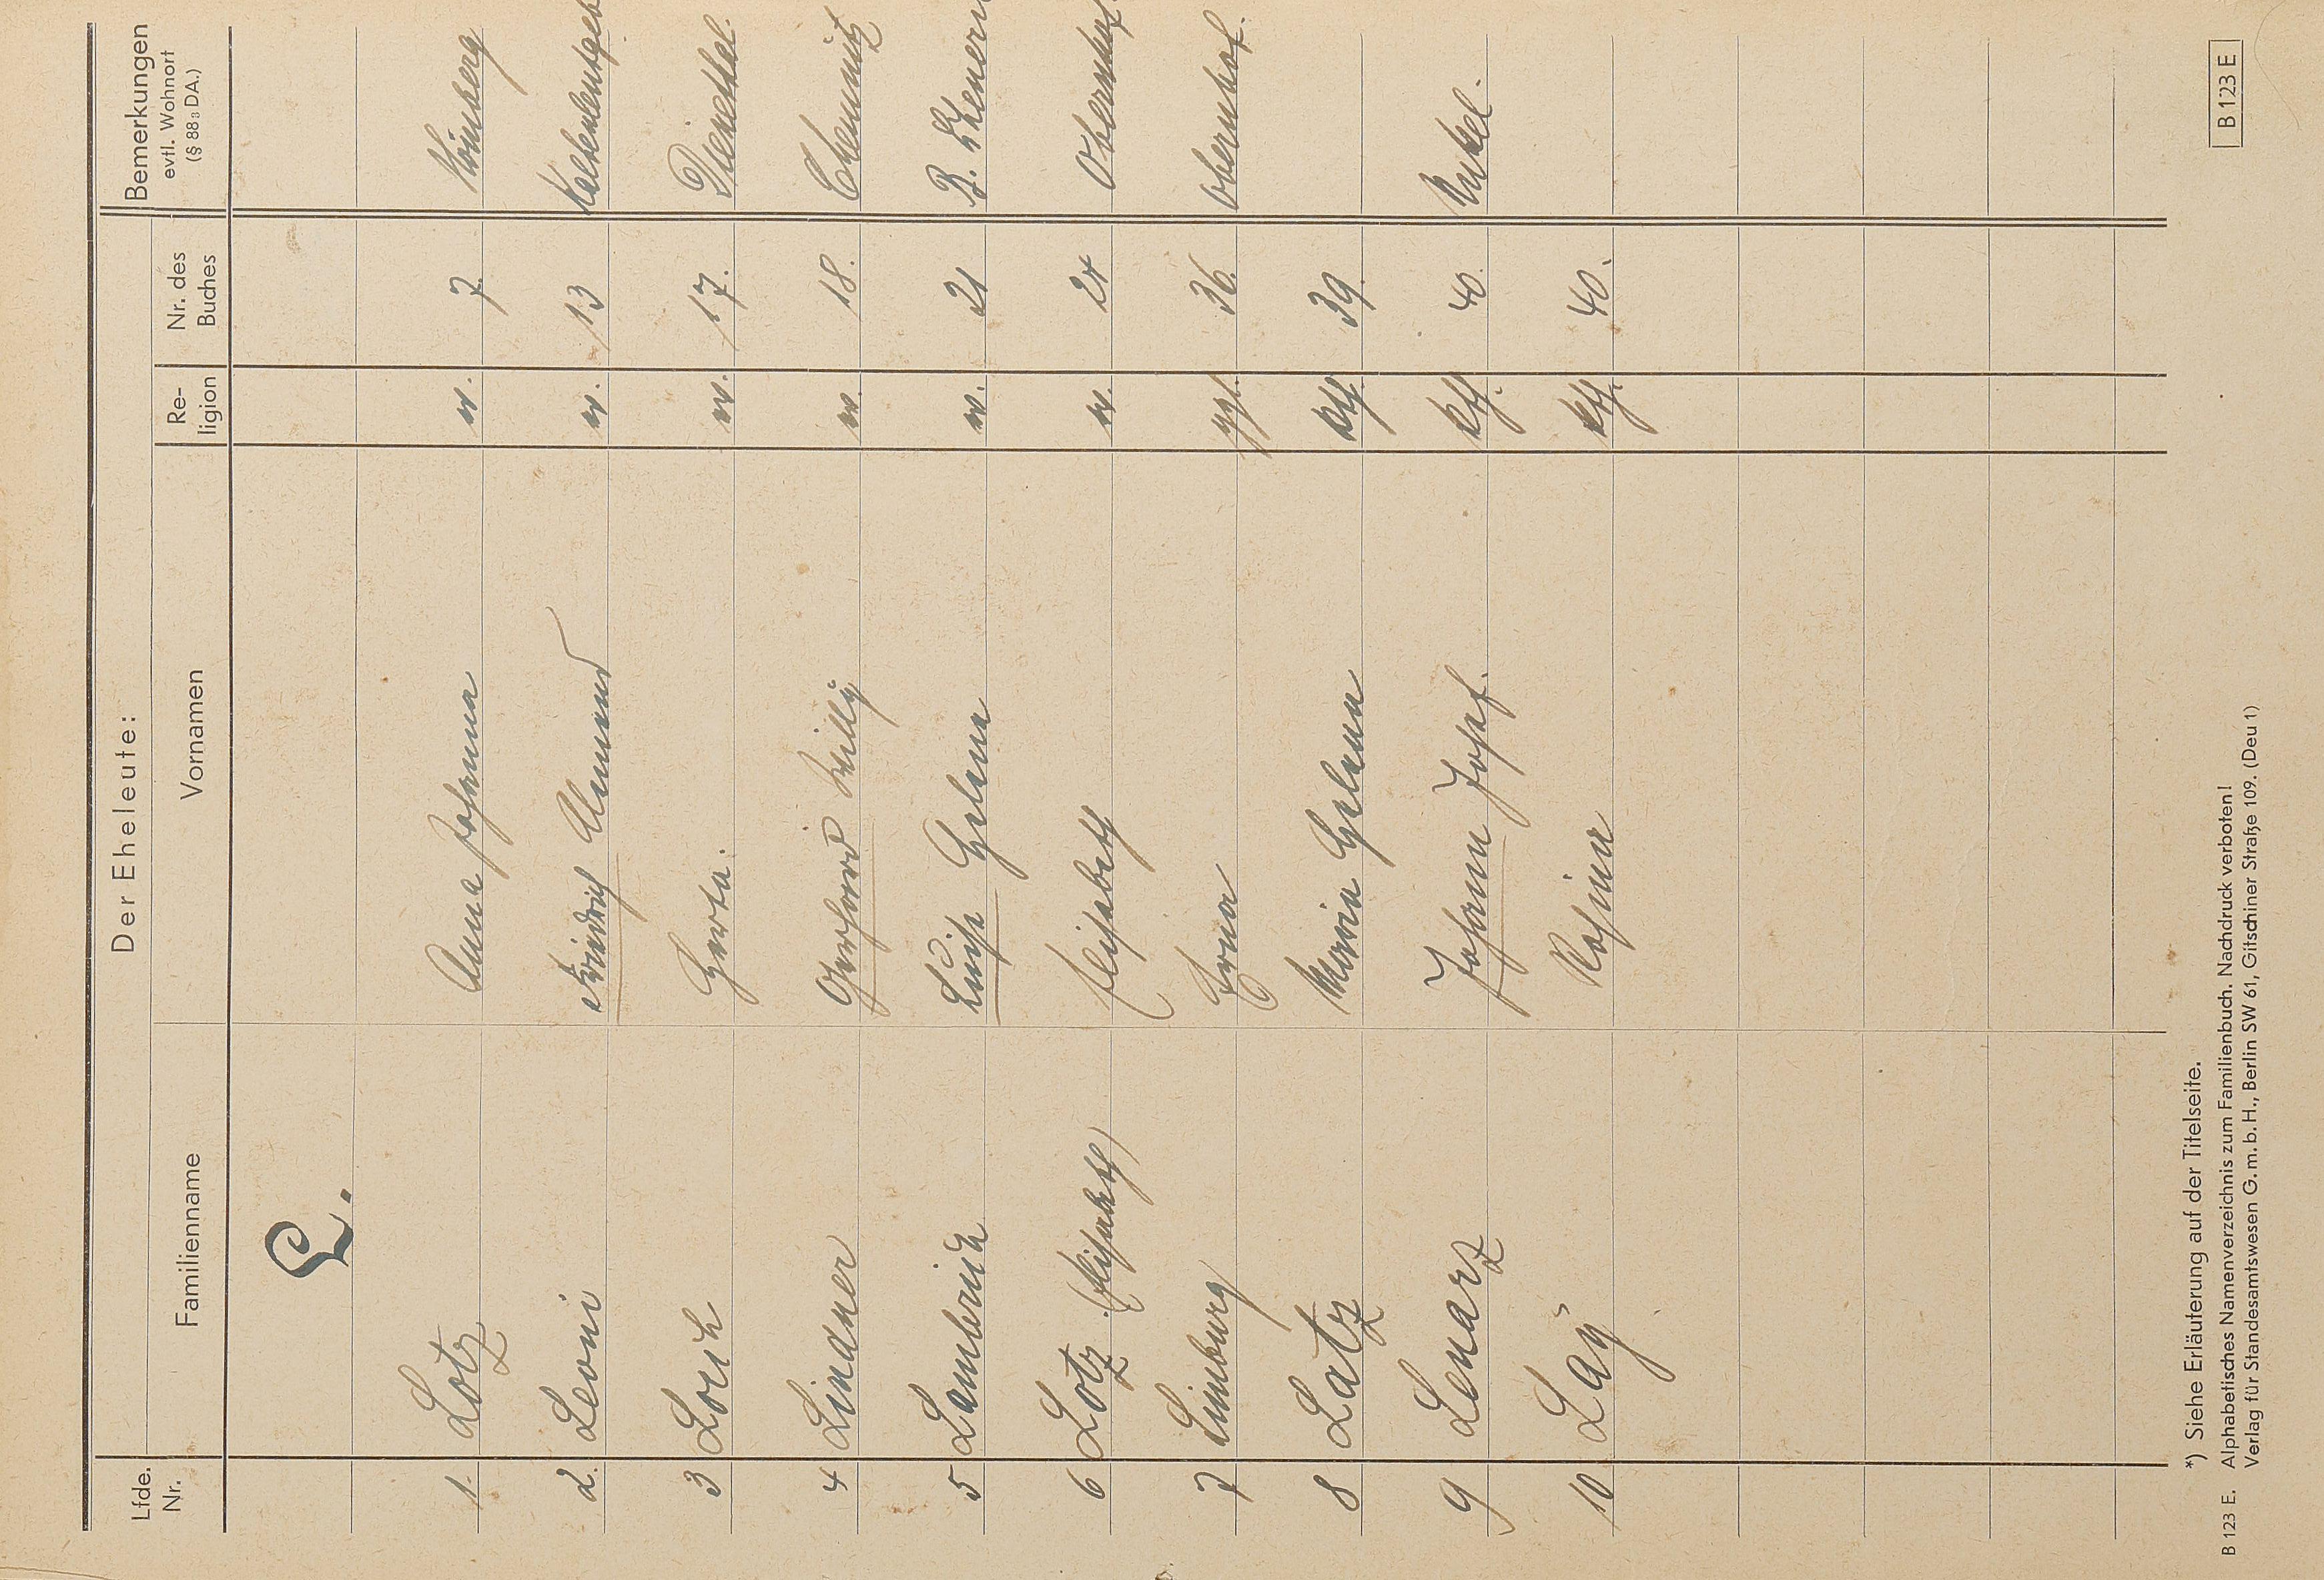 Der Eheleute:
Lfde. Nr. Familienname Vornamen Re-ligion Nr. des Buches Bemerkungen evtl. Wohnort (§ 88 3 DA.)
L.
1. Lotz Anna Johanna ev. 7.
2. Leoni Friedrich Armand ev. 13
3 Lorch Herta. ev. 17. Dienethal.
4 Lindner Gerhard Willy ev. 18. Chemnitz
5 Lambrich Luise Helene ev. 21
6 Lotz (Elisabeth) Elisabeth ev. 24 Obernhof.
7 Limburg Erna 36. Obernhof.
8 Latz Maria Helena kth. 39.
9 Lenarz Johann Josef. kth. 40.
10 Laÿ Rosina kth. 40.
*) Siehe Erläuterung auf der Titelseite.
B 123 E. Alphabetisches Namenverzeichnis zum Familienbuch. Nachdruck verboten!
Verlag für Standesamtswesen G. m. b. H., Berlin SW 61, Gitschiner Straße 109. (Deu 1)
B 123 E